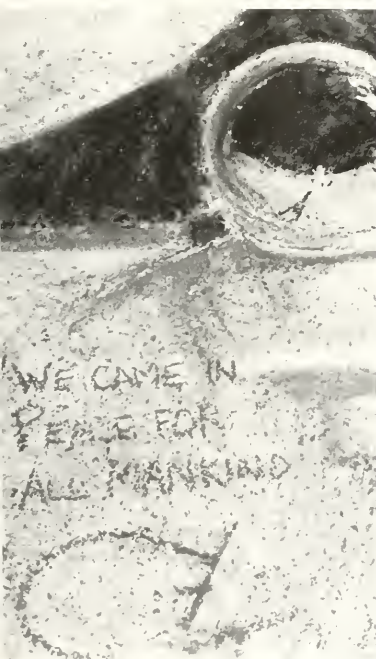 WE CAME IN
PEACE FOR
ALL MANKIND